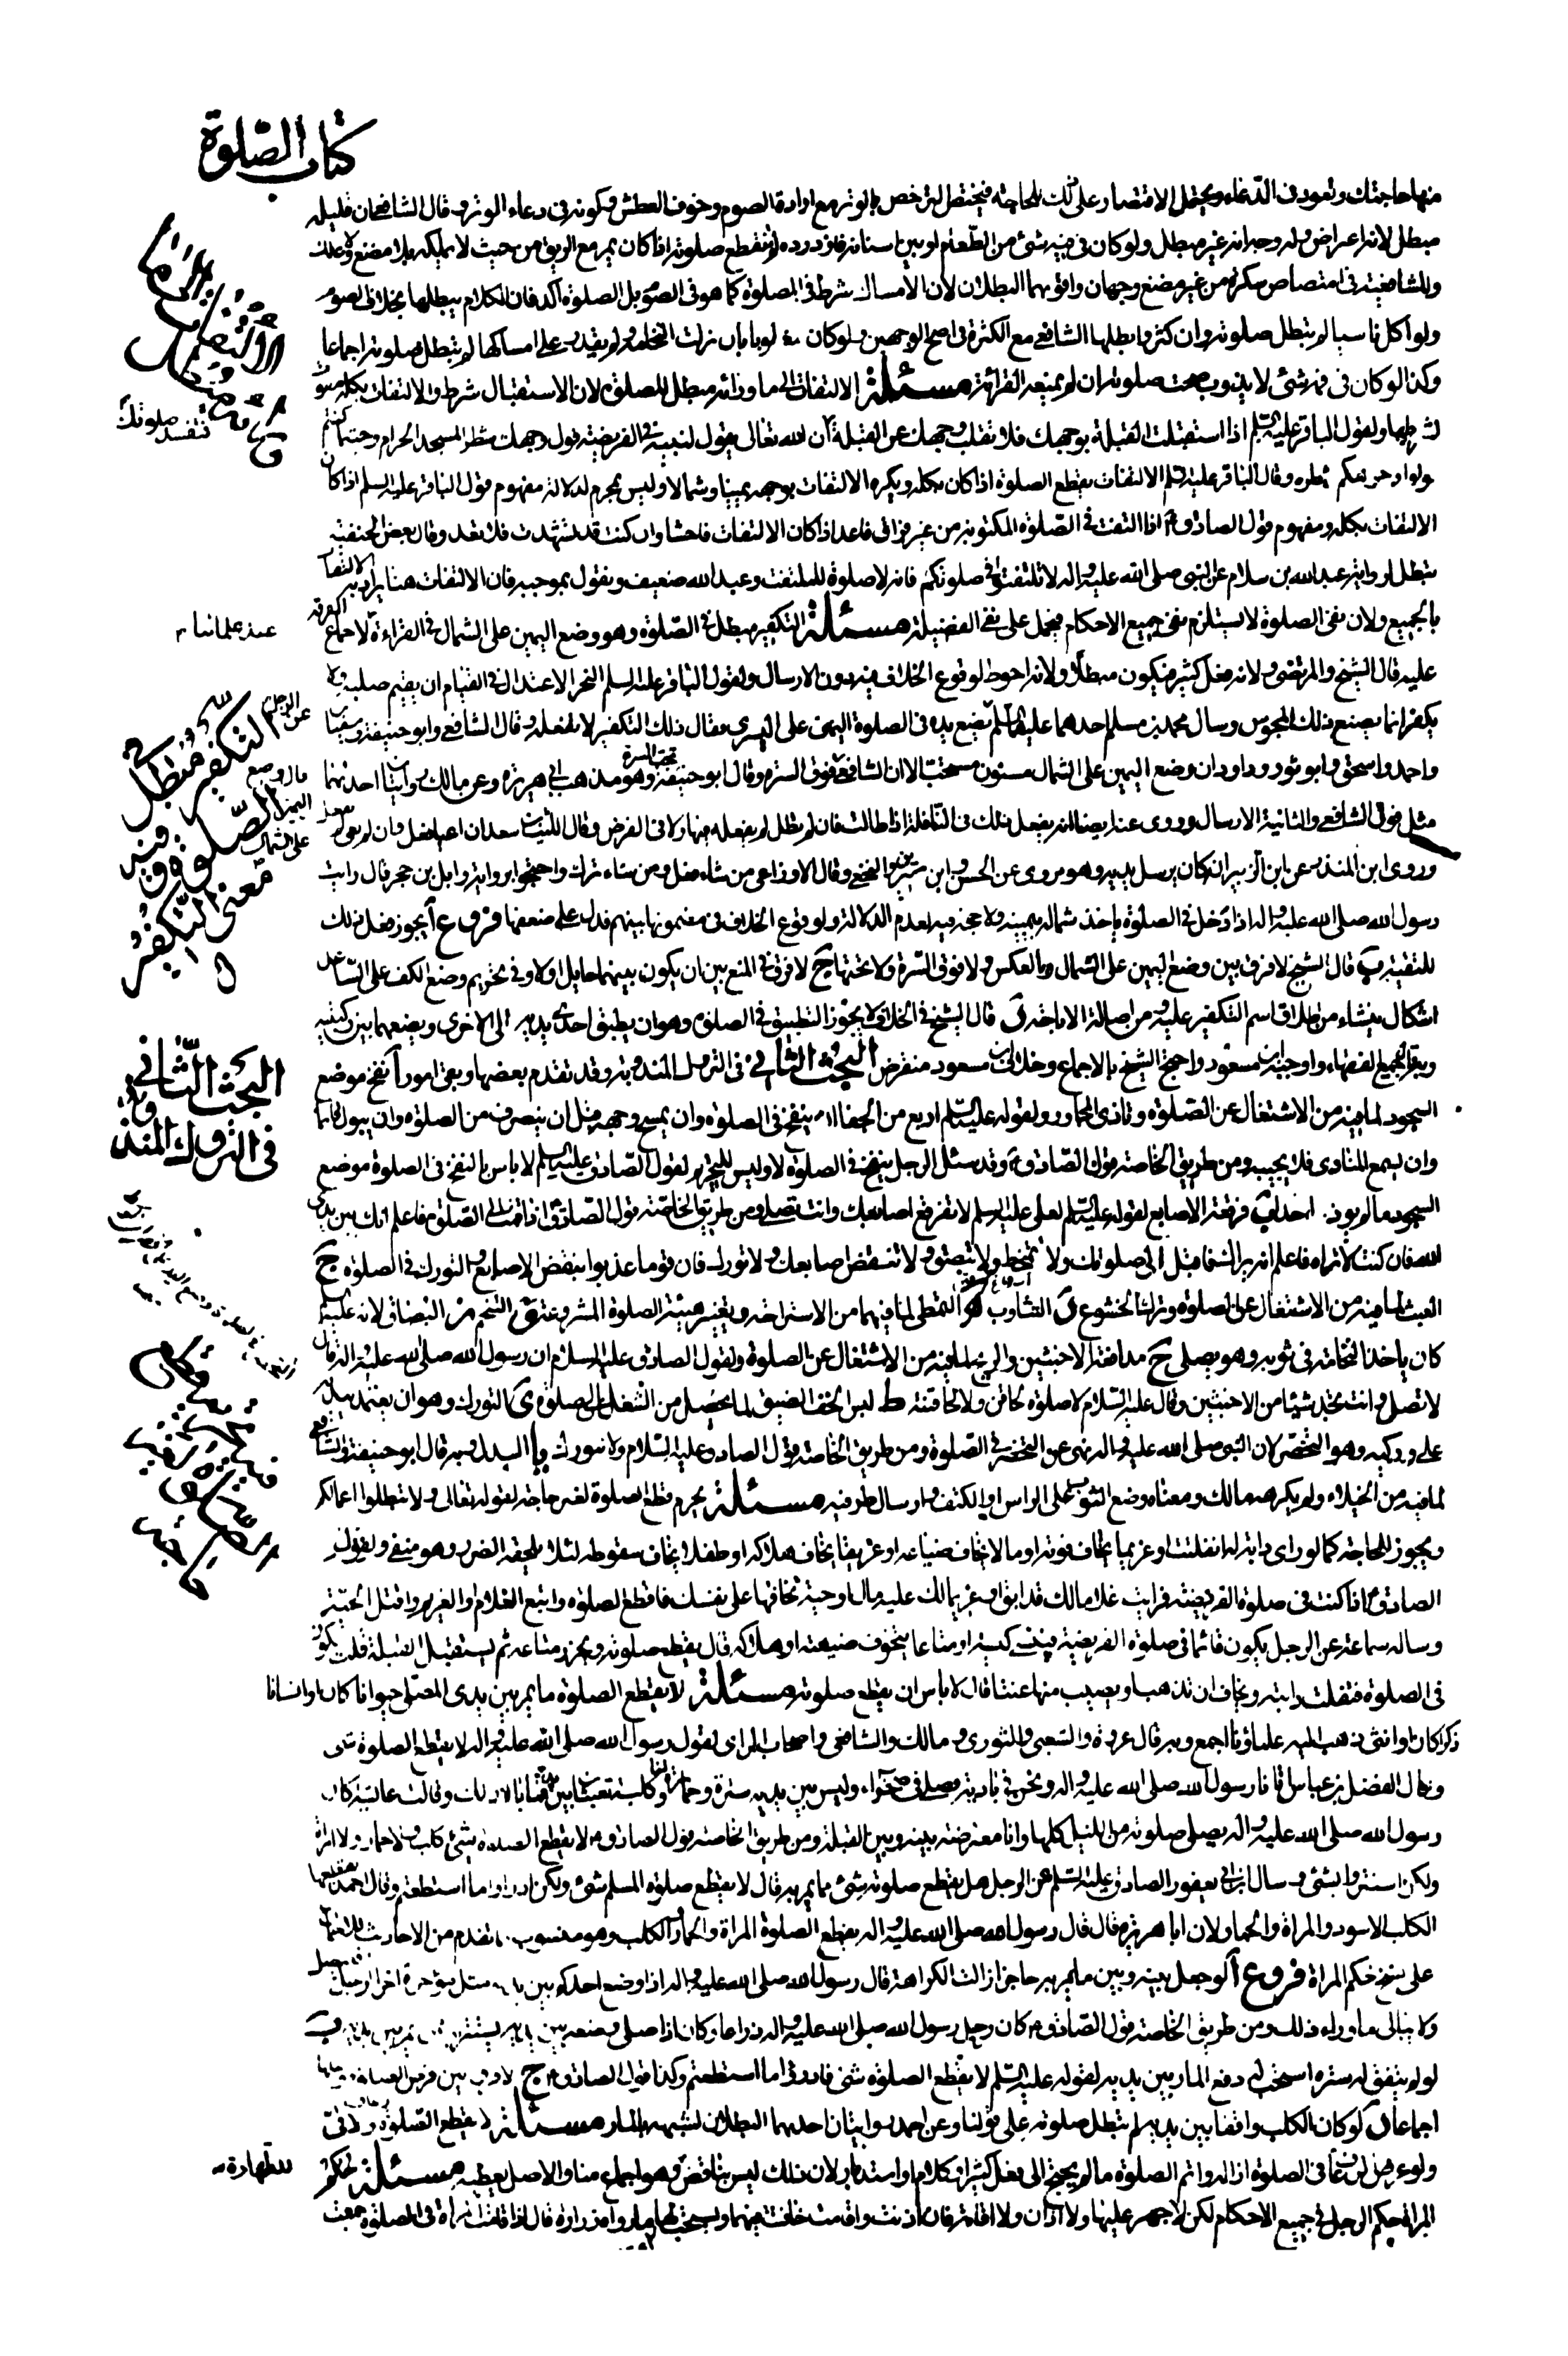 كتاب الصلوة
منها حاجتك وتعود في الدعاء ويحتمل الاقتصار على ذلك للحاجة فيختص الترخص بالوتر مع ارادة الصوم وخوف العطش وكونه في دعاء الوتر وقال الشافعي ان قليله
مبطل لانه اعراض وله وجه انه غير مبطل ولو كان في فيه شئ من الطعام او بين اسنانه فازدرده لم تقطع صلوته اذا كان يمر مع الريق من حيث لا يملكه بلا مضغ ولا علك
وللشافعية في امتصاص سكرة من غير مضغ وجهان واقويهما البطلان لان الامساك شرط في الصلوة كما هو في الصوم بل الصلوة آكد فان الكلام يبطلها بخلاف الصوم
ولو اكل ناسيا لم يبطل صلوته وان كثر وابطلها الشافعي مع الكثرة في اصح الوجهين ولو كان لوبا بان نزلت النخامة ولم يقدر على امساكها لم تبطل صلوته اجماعا
وكذا لو كان في فمه شئ لا يذوب صحت صلوته ان لم يمنعه القرائة مسئلة الالتفات الى ما ورائه مبطل للصلوة لان الاستقبال شرط والالتفات بكله مفوت
لشرطها ولقول الباقر عليه السلم اذا استقبلت القبلة بوجهك فلا تقلب وجهك عن القبلة ان الله تعالى يقول لنبيه في الفريضة فول وجهك شطر المسجد الحرام وحيثما كنتم
فولوا وجوهكم شطره وقال الباقر عليه السلم الالتفات يقطع الصلوة اذا كان بكله ويكره الالتفات بوجهه يمينا وشمالا وليس بمحرم لدلالة مفهوم قول الباقر عليه السلم اذا كان
الالتفات بكله ومفهوم قول الصادق ع اذا التفت في الصلوة المكتوبة من غير فراغ فاعد اذا كان الالتفات فاحشا وان كنت قد تشهدت فلا تعد وقال بعض الحنفية
تبطل لرواية عبدالله بن سلام عن النبي صلى الله عليه واله لا تلتفتوا في صلوتكم فانه لا صلوة للملتفت وعبدالله ضعيف ونقول بموجبه فان الالتفات هنا يراد به الالتفات
بالجميع ولان نفي الصلوة لا يستلزم نفي جميع الاحكام فيحمل على نفي الفضيلة مسئلة التكفير مبطل في الصلوة وهو وضع اليمين على الشمال في القراءة لاجماع الفرقة
عليه قال الشيخ والمرتضى ولانه فعل كثير فيكون مبطلا ولانه احوط لوقوع الخلاف فيه دون الارسال ولقول الباقر عليه السلم النحر الاعتدال في القيام ان يقيم صلبه ولا
يكفر انما يصنع ذلك المجوس وسال محمد بن مسلم احدهما عليهما السلم يضع يده في الصلوة اليمنى على اليسرى فقال ذلك التكفير لا تفعله وقال الشافعي وابو حنيفة وسفيان
واحمد واسحق وابو ثور وداود ان وضع اليمين على الشمال مسنون مستحب الا ان الشافعي فوق السرة وقال ابو حنيفة تحت السرة وهو مذهب ابي هريرة وعن مالك روايتان احديهما
مثل قول الشافعي والثانية الارسال وروى عنه ايضا انه يفعل ذلك في النافلة اذا طالت فان لم تطل لم يفعله فيها ولا في الفرض وقال الليث بن سعد ان اعيا فعل وان لم يعي لم يفعل
وروى ابن المنذر عن ابن الزبير انه كان يرسل يديه وهو مروي عن الحسن وابن سيرين والنخعي وقال الاوزاعي من شاء فعل ومن شاء ترك واحتجوا برواية وابل بن حجر قال رايت
رسول الله صلى الله عليه واله اذا دخل في الصلوة ياخذ شماله بيمينه ولا حجة فيه لعدم الدلالة ولوقوع الخلاف في مضمونها بينهم فدل على ضعفها فروع آ يجوز فعل ذلك
للتقية ب قال الشيخ لا فرق بين وضع اليمين على الشمال وبالعكس ولا فوق السرة ولا تحتها ج لا فرق في المنع بين ان يكون بينهما حايل او لا وفي تحريم وضع الكف على الساعد
اشكال ينشاء من اطلاق اسم التكفير عليه ومن اصالة الاباحة د قال الشيخ في الخلاف لا يجوز التطبيق في الصلوة وهو ان يطبق احدى يديه الى الاخرى ويضعهما بين ركبتيه
وبه قال جميع الفقهاء واوجبه ابن مسعود واحتج الشيخ بالاجماع وخلاف ابن مسعود منقرض البحث الثاني في التروك المندوبة وقد تقدم بعضها وبقي امور آ نفخ موضع
السجود لما فيه من الاشتغال عن الصلوة وتاذى المجاور ولقوله عليه السلم اربع من الجفاء ان ينفخ في الصلوة وان يمسح وجهه قبل ان ينصرف من الصلوة وان يبول قائما
وان يسمع المنادى فلا يجيبه ومن طريق الخاصة قول الصادق ع وقد سئل الرجل ينفخ في الصلوة لا وليس للتحريم لقول الصادق عليه السلم لا باس بالنفخ في الصلوة موضع
السجود ما لم يوذ احدا ب فرقعة الاصابع لقوله عليه السلم لعلي عليه السلم لا تفرقع اصابعك وانت تصلي ومن طريق الخاصة قول الصادق ع اذا قمت الى الصلوة فاعلم انك بين يدى
الله فان كنت لا تراه فاعلم انه يراك فاقبل الى صلوتك ولا تمتخط ولا تبصق ولا تنقض اصابعك ولا تورك فان قوما عذبوا بنقض الاصابع والتورك في الصلوة ج
العبث لما فيه من الاشتغال عن الصلوة وترك الخشوع د التثاوب ه التمطي لما فيهما من الاستراحة وتغيير هيئة الصلوة المشروعة و التنخم ز البصاق لانه عليه السلم
كان ياخذ النخامة في ثوبه وهو يصلي ح مدافعة الاخبثين والريح لما فيه من الاشتغال عن الصلوة ولقول الصادق عليه السلام ان رسول الله صلى الله عليه واله قال
لا تصل وانت تجد شيئا من الاخبثين وقال عليه السلام لا صلوة لحاقن ولا لحاقنة ط لبس الخف الضيق لما يحصل من الشغل عن الصلوة ى التورك وهو ان يعتمد بيديه
على وركيه وهو التخصر لان النبي صلى الله عليه واله نهى عن التخصر في الصلوة ومن طريق الخاصة قول الصادق عليه السلام ولا تتورك يا السدل وبه قال ابو حنيفة والشافعي
لما فيه من الخيلاء ولم يكرهه مالك ومعناه وضع الثوب على الراس او الكتف وارسال طرفيه مسئلة يحرم قطع الصلوة لغير حاجة لقوله تعالى ولا تبطلوا اعمالكم
ويجوز للحاجة كما لو راى دابة له انفلتت او غريما يخاف فوته او مالا يخاف ضياعه او غريقا يخاف هلاكه او طفلا يخاف سقوطه لئلا يلحقه الضرر وهو منفى ولقول
الصادق ع اذا كنت في صلوة الفريضة فرايت غلاما لك قد ابق او غريما لك عليه مال او حية تخافها على نفسك فاقطع الصلوة واتبع الغلام والغريم واقتل الحية
وساله سماعة عن الرجل يكون قائما في صلوة الفريضة فينسى كيسه او متاعا يتخوف ضيعته او هلاكه قال يقطع صلوته ويحرز متاعه ثم يستقبل القبلة قلت يكون
في الصلوة فتفلت دابته ويخاف ان تذهب او يصيب منها عنتا قال لا باس ان يقطع صلوته مسئلة لا يقطع الصلوة ما يمر بين يدى المصلي حيوانا كان او انسانا
ذكرا كان او انثى ذهب اليه علماؤنا اجمع وبه قال عروة والشعبي والثوري ومالك والشافعي واصحاب الراى لقول رسول الله صلى الله عليه واله لا يقطع الصلوة شئ
وقال الفضل بن عباس اتانا رسول الله صلى الله عليه واله ونحن في بادية فصلى في صحراء وليس بين يديه سترة وحمارة لنا وكلبة تعبثان بين يديه فما بالى ذلك وقالت عائشة كان
رسول الله صلى الله عليه واله يصلي صلوته من الليل كلها وانا معترضة بينه وبين القبلة ومن طريق الخاصة قول الصادق ع لا يقطع الصلوة شئ كلب ولا حمار ولا امراة
ولكن استتروا بشئ وسال ابن ابي يعفور الصادق عليه السلم عن الرجل هل يقطع صلوته شئ مما يمر به قال لا يقطع صلوة المسلم شئ ولكن ادرؤا ما استطعتم وقال احمد يقطعها
الكلب الاسود والمراة والحمار لان ابا هريرة قال قال رسول الله صلى الله عليه واله يقطع الصلوة المراة والحمار والكلب وهو منسوب بما تقدم من الاحاديث
على نسخ حكم المراة فروع آ لو جعل بينه وبين ما يمر به حاجزا زالت الكراهة قال رسول الله صلى الله عليه واله اذا وضع احدكم بين يديه مثل مؤخرة الرحل فليصل
ولا يبالي ما وراء ذلك ومن طريق الخاصة قول الصادق ع كان رحل رسول الله صلى الله عليه واله ذراعا وكان اذا صلى وضعه بين يديه يستتر به ممن يمر بين يديه ب
لو لم يتفق له سترة استحب له دفع المار بين يديه لقوله عليه السلم لا يقطع الصلوة شئ فادرؤا ما استطعتم وكذا قول الصادق ع ج لا فرق بين فرض الصلوة ونفلها
اجماعا د لو كان الكلب واقفا بين يديه لم تبطل صلوته على قولنا وعن احمد روايتان احديهما البطلان لشبهه بالمار مسئلة لا يقطع الصلوة رعاف ولا قئ
ولو عرض الرعاف في الصلوة ازاله واتم الصلوة ما لم يحتج الى فعل كثير او كلام او استدبار لان ذلك ليس بناقض وهو اجماع منا والاصل يعطيه مسئلة حكم
المراة حكم الرجل في جميع الاحكام لكن لا جهر عليها ولا اذان ولا اقامة فان اذنت واقامت خافتت فيهما ويستحب لها ما رواه زرارة قال اذا قامت المراة في الصلوة جمعت
تفسد صلوتك
عند علمائنا
التكفير مبطل في الصلوة وفيه معنى التكفير
عن الرجل
قال وضع اليمين على الشمال
البحث الثاني في التروك المندوبة
للطهارة